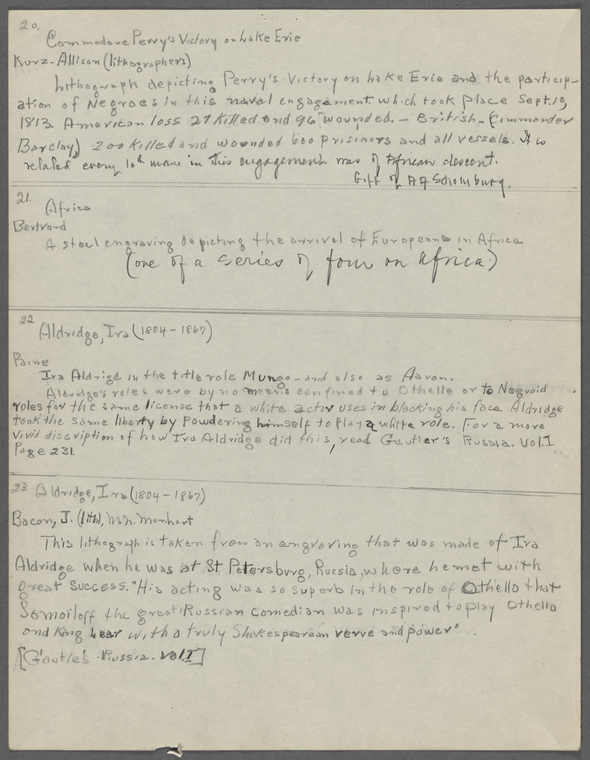 20.
Commodore Perry's Victory on Lake Erie
Kurz-Allison (lithographers)
Lithograph depicting Perry's Victory on Lake Erie and the particip-
ation of Negroes in this naval engagement which took place Sept. 10,
1813. American loss 27 killed and 96 wounded. - British - Commander
Barclay) 200 killed and wounded 600 prisoners and all vessels. It is
related every 10th man in this engagement was of African descent.
Gift of A A Schomburg.
21.
Africa
Bertrand
A steel engraving depicting the arrival of Europeans in Africa
(one of a series of four on Africa)
22
Aldridge, Ira (1804-1867)
Paine
Ira Aldrige in the title role Mungo - and also as Aaron.
Aldridge's roles were by no means confined to Othello or to Negroid
roles for the same license that a white actor uses in blacking his face Aldridge
took the same liberty by powdering himself to play a white role. For a more
vivid discription of how Ira Aldridge did this, read Gautier's Russia. Vol. I
Page 231.
23 Aldridge, Ira (1804-1867)
Bacon, J. (lith), M.N. Manhart
This lithograph is taken from an engraving that was made of Ira
Aldridge when he was at St. Petersburg, Russia, where he met with
great success. "His acting was so superb in the role of Othello that
Somoiloff the great Russian comedian was inspired to play Othello
and King Lear with a truly Shakespearean verve and power".
[Gautie's Russia. Vol. I]